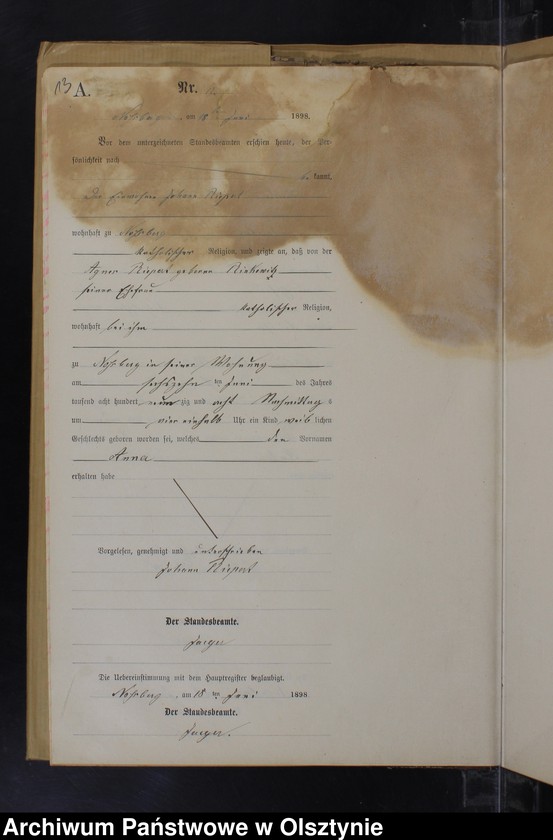 13 A.
Nr.
am 18 ten Juni 1898.
Vor dem unterzeichneten Standesbeamten erschien heute, der Per-
sönlichkeit nach
kannt,
Der Einwohner Johann
wohnhaft zu Noßberg
katholischer Religion, und zeigte an, daß von der
geborene
seiner Ehefrau
katholischer Religion,
wohnhaft bei ihm
zu Noßberg in seiner Wohnung
am sechszehn ten Juni des Jahres
tausend acht hundert neun zig und acht Nachmittag s
um vier einhalb Uhr ein Kind weib lichen
Geschlechts geboren worden sei, welches den Vornamen
Anna
erhalten habe
Vorgelesen, genehmigt und unterschrieben
Johann
Der Standesbeamte.
Jaeger
Die Uebereinstimmung mit dem Hauptregister beglaubigt.
Noßberg, am 18 ten Juni 1898
Der Standesbeamte.
Jaeger.
Archiwum Państwowe w Olsztynie